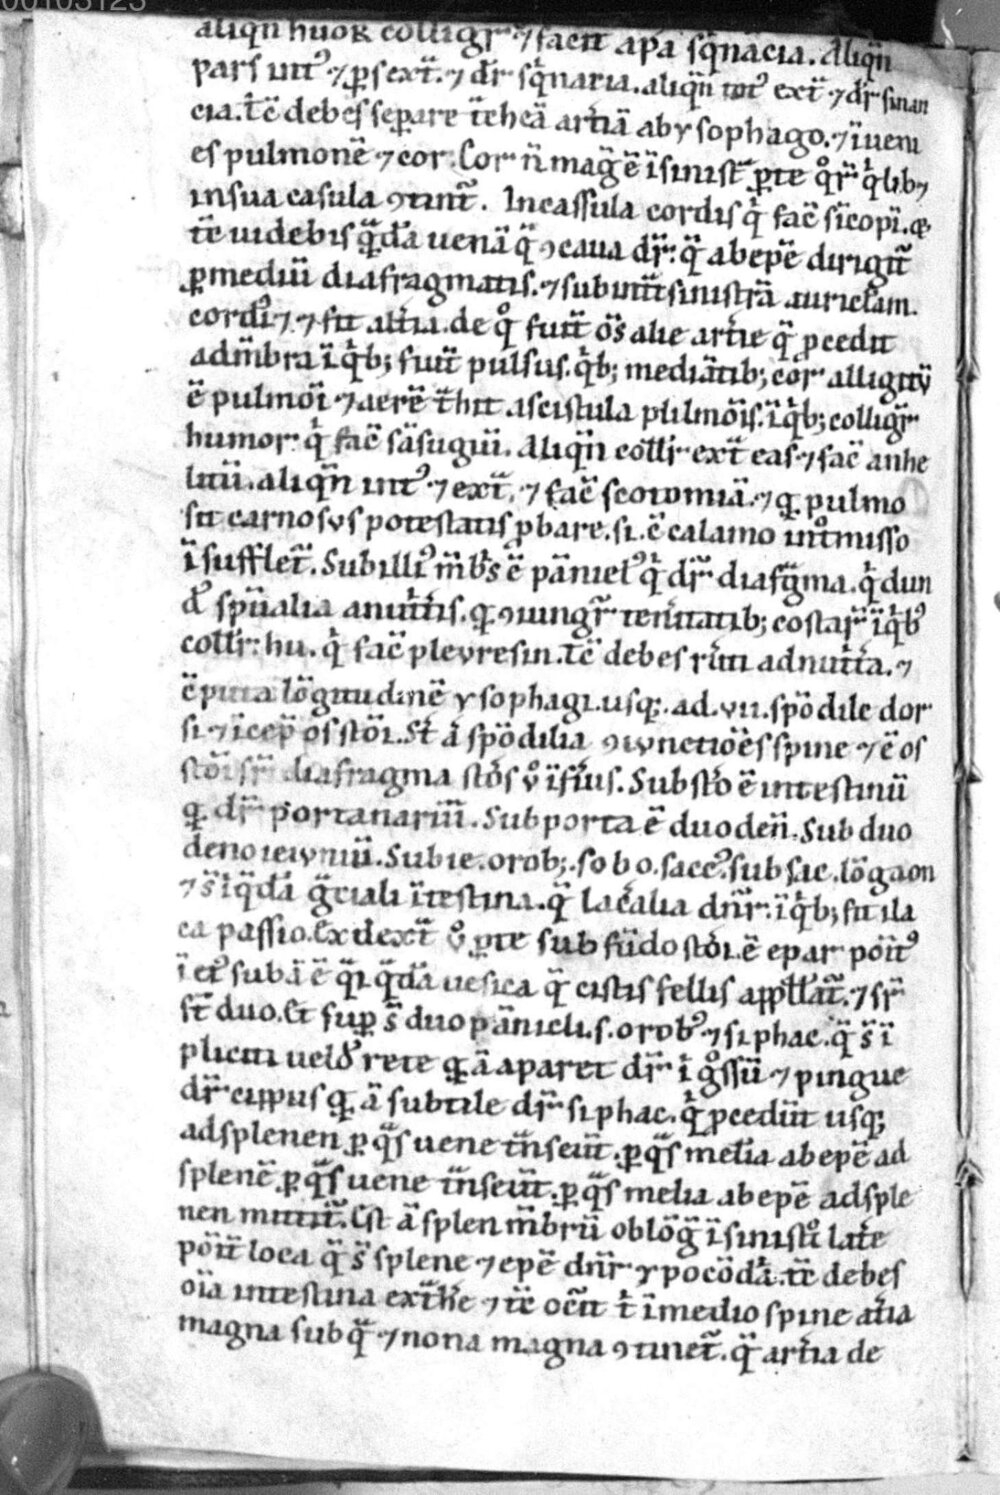 00103123
aliqn̄ huoꝝ colligr̄ ⁊ facit apa sq̄nacia. Aliqn̄
pars int᷒ ⁊ ꝑs ext̄. ⁊ dr̄ sq̄naria. aliqn̄ tot᷒ ext̄ ⁊ dr̄ sinan
cia. t̄c̄ debes seꝑare t̄heā artīā ab ysophago. ⁊ īueni
es pulmonē ⁊ cor. Cor n̄ maḡ ē ī sinist̄ ꝑte q̊r̄ q̇lib⁊
in sua casula ꝯtint̄. In cassula cordis q̇ fac̄ sīcopī. œ
t̄c̄ uidebis q̄dā uenā q̄ ꝯcaua dr̄. q̄ ab epē dirigit̄
ꝑ mediū diafragmatis. ⁊ subintīt sinistrā auriclam
cordis. ⁊ fit artīa. de q̊ fiūt ōs alie artīe q̄ ꝓcedūt
ad m̄bra ī q̇b; fiūt pulsus. q̇b; mediātib; cor alligatū
ē pulmoī ⁊ aerē t̄hit a scistula pulmōis. ī q̇b; colligr̄
humor q̇ fac̄ sāsugiū. Aliqn̄ coll̄r ext̄ eas ⁊ fac̄ anhe
litū. aliqn̄ int᷒ ⁊ ext̄. ⁊ fac̄ scotomiā. ⁊ q pulmo
sit carnosus potestatis ꝓbare. si. ē calamo int̊misso
īsufflet̄. Sub illis m̄bs ē pānicl᷒ q̇ dr̄ diafḡma. q̇ diui
d᷒ spūalia a nutītis. q ꝯiungr̄ tenūtatib; costaꝝ ī q̇b᷒
coll̄r. hu. q̇ fac̄ plevresin. t̄c̄ debes rīti ad nutītā. ⁊
ē puta lōgitudinē ysophagi. usq;. ad. vii. spōdile dor
si ⁊ īcep̄ os stōi. St̄ ā spōdilia ꝯiunctiōēs spine ⁊ ē os
stōi sr̄ diafragma stōs v̊ īfius. Sub stō ē intestinū
q dr̄ portanariū. Sub porta ē duoden̄. Sub duo
deno ieiuniū. Sub ie. orob;. so b o. sacc᷒. sub sac. lōgaon
⁊ s̄ īq̄dā ḡciali ītestina. q̄ lacālia dn̄r. ī q̇b; fit ila
ca passio. Ex dext̄ v̊ ꝑte sub fūdo stōi. ē epar pōit᷒
ī ei᷒ subā ē q̄i q̄dā uesica q̄ cistis fellis appll̄at̄. ⁊ sr̄
st̄ duo. Et suꝑ s̄ duo pānicli. s. orob᷒ ⁊ siphac. q̄ s̄ ī
pliciti uelđ rete q ā aparet dr̄ ī g̊ssū ⁊ pingue
dr̄ cippus q ā subtile dr̄ siphac. q̇ ꝓcedūt usq;
ad splenen ꝑ q̄s uene t̄nseūt. ꝑ q̄s melīa ab epē ad
splenē ꝑ q̄s uene t̄nseūt. ꝑ q̄s melia ab epē ad sple
nen mittit̄. Est ā splen m̄brū oblōḡ ī sinist̊ lat̄e
pōit̄ loca q̄ s̄ splene ⁊ epē dn̄r ypocōdā. t̄c̄ debes
oīa intestina ext̄hē ⁊ t̄c̄ oc̄ūt t̄ ī medio spine atīa
magna sub q̄ ⁊ nona magna ꝯtinet̄. q̄ artīa de